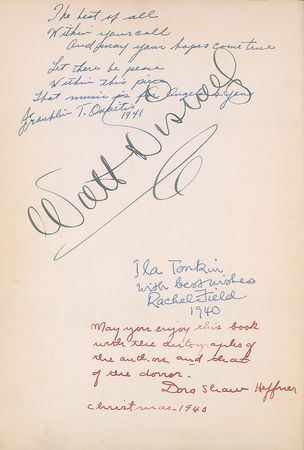 The best of all
Within your call
And may your hopes come true
Let there be peace
Within this
That music is
Franklin T.
1941
Walt Disney
Ila Tonkin
with best wishes
Rachel Field
1940
May you enjoy this book
with the autographs of
the authors and that
of the donor.
Dora Shaw Heffner
Christmas-1940